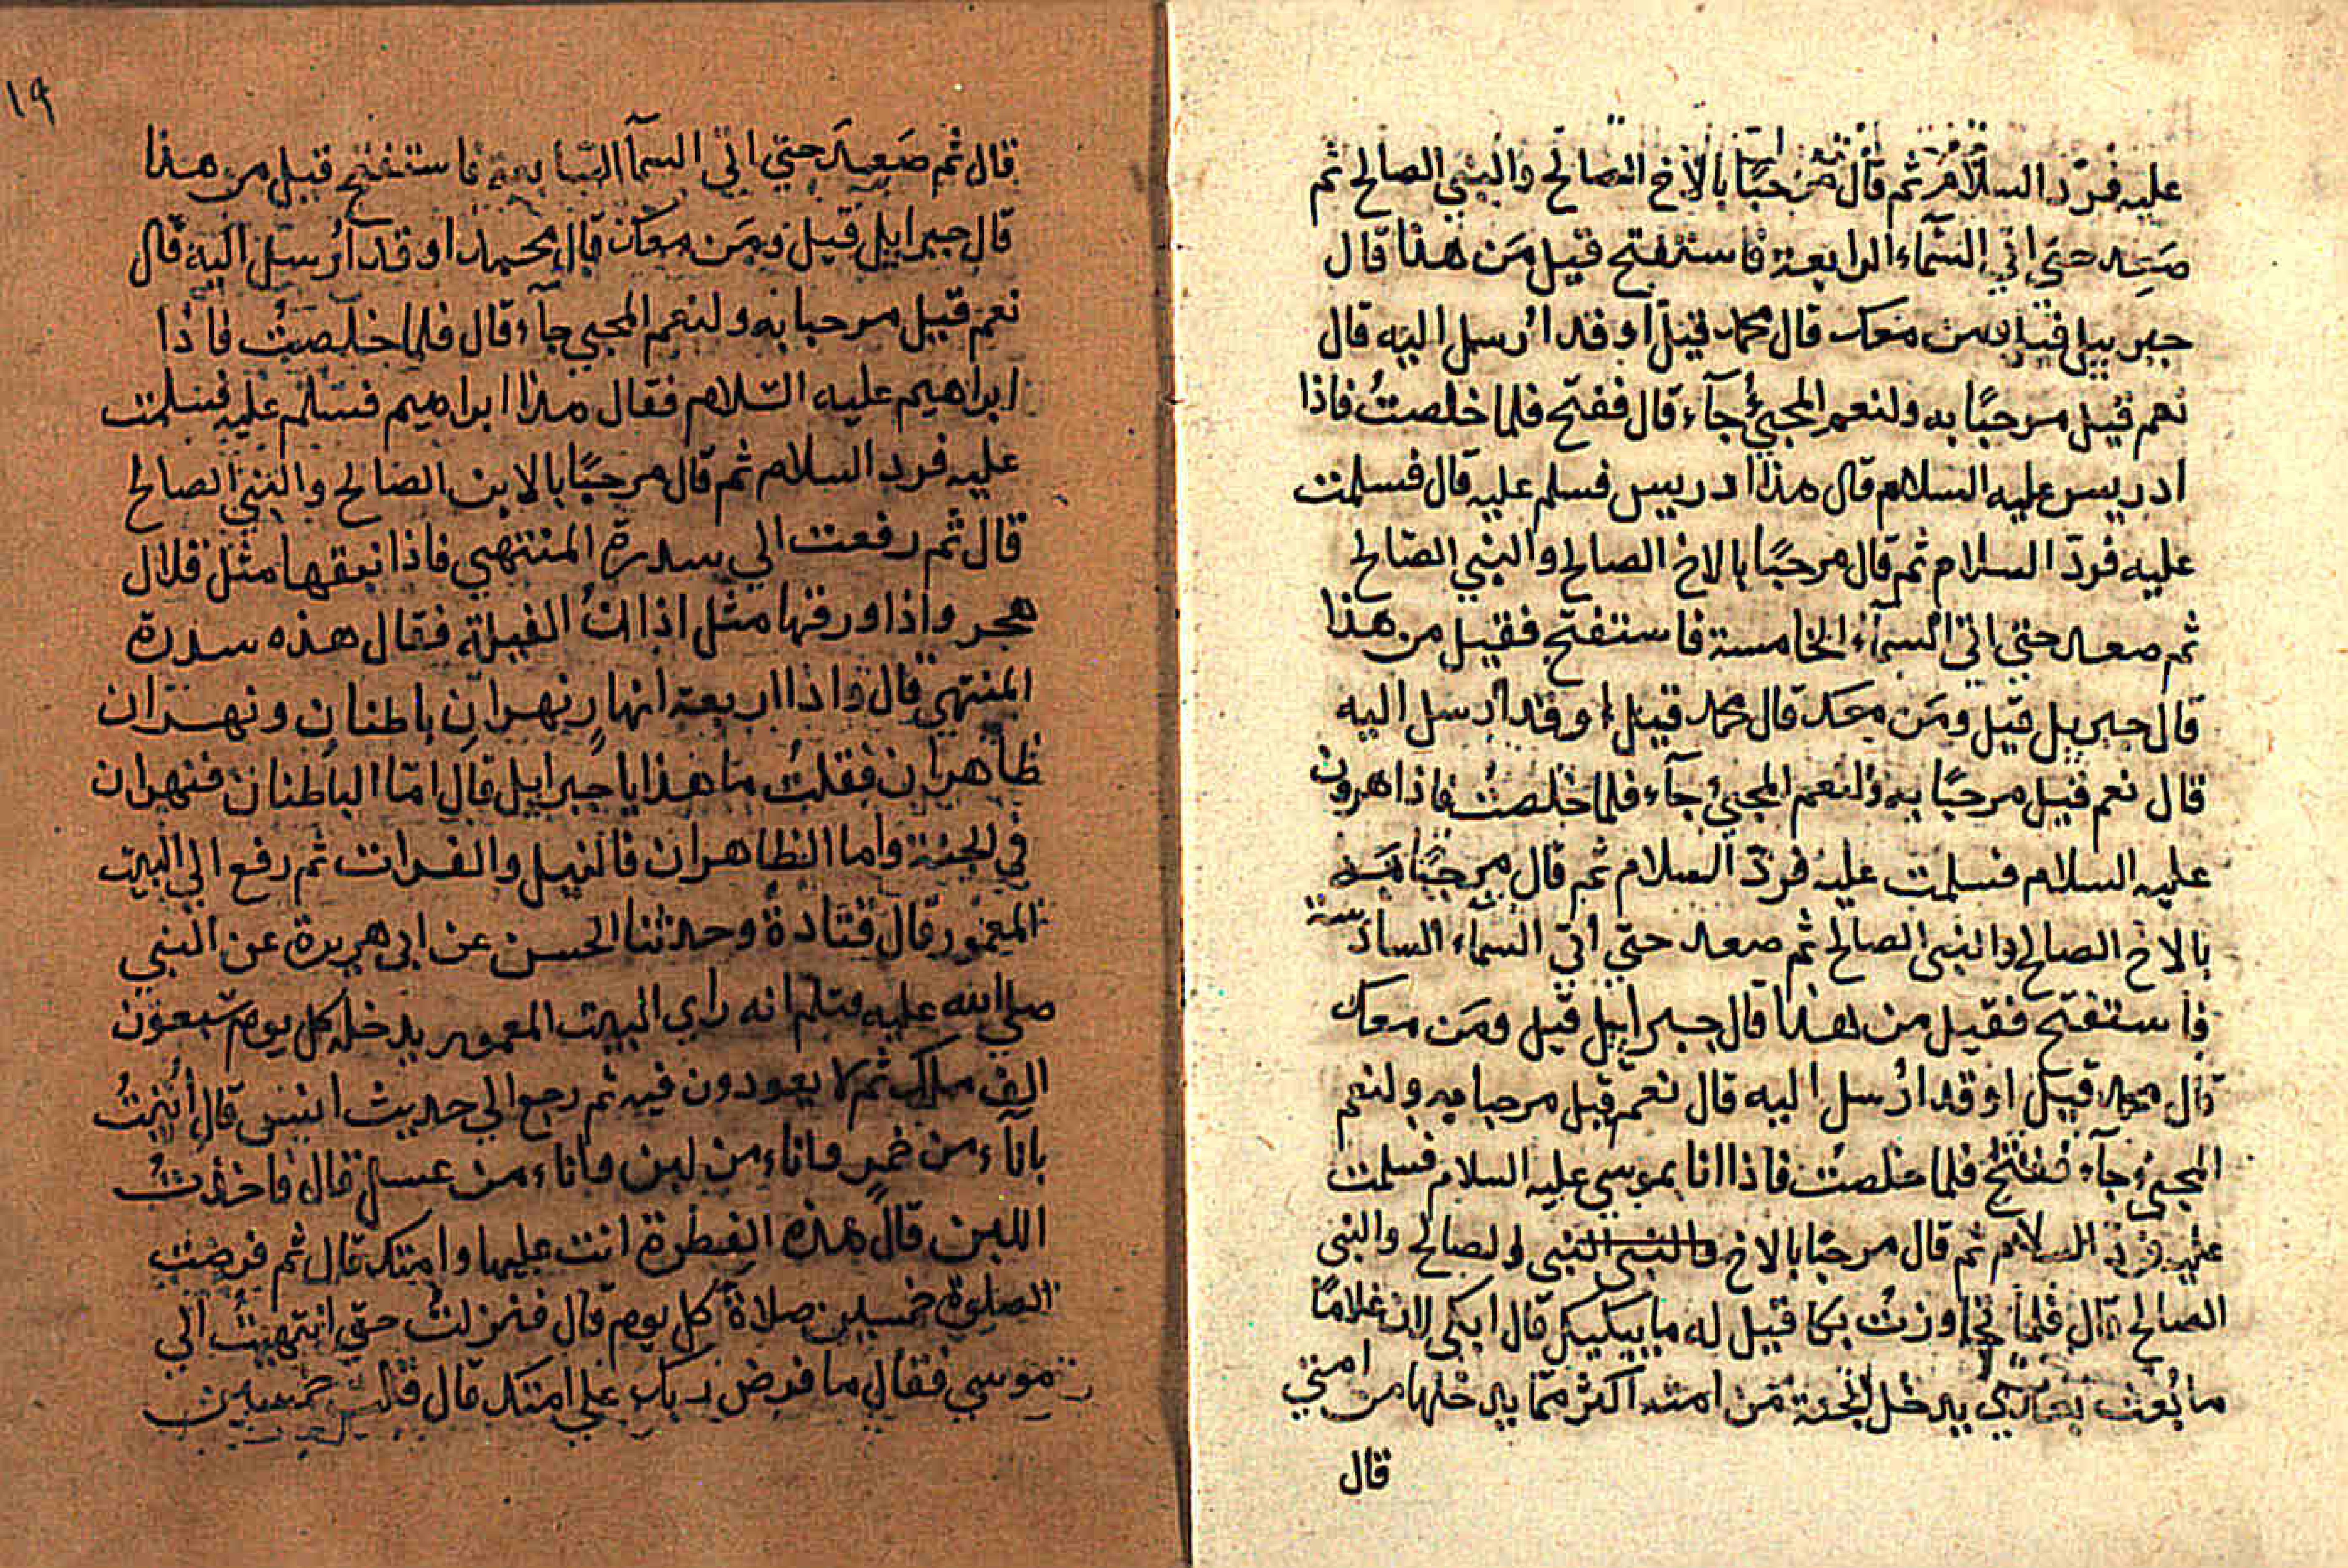 عليه فردّ السلام ثم قال مرحبًا بالاخ الصالح والنبي الصالح ثم
صَعِد حتى اتي السَّمآء الرابعة فاستفتح قيل مَن هذا قال
جبرييل قيل ومن معك قال محمد قيل اوقد اُرسل اليه قال
نعم قيل مرحبًا به ولنعم المجيُ جآء قال ففتح فلما خلصتُ فاذا
ادريس عليه السلام قال هذا ادريس فسلم عليه قال فسلمت
عليه فردّ السلام ثم قال مرحبًا بالاخ الصالح والنبي الصّالح
ثم صعد حتي اتي السمآء الخامسة فاستفتح فقيل من هذا
قال جبرييل قيل ومَن معك قال محمد قيل اوقد اُرسل اليه
قال نعم قيل مرحبًا به ولنعم المجيُ جآء فلما خلصتُ فاذا هرون
عليه السلام فسلمت عليه فردّ السلام ثم قال مرحبًا
بالاخ الصالح والنبى الصالح ثم صعد حتي اتي السمآء السادسة
فاستفتح فقيل من هذا قال جبراييل قيل ومَن معك
قال محمد قيل اوقد اُرسل اليه قال نعم قيل مرحبا به ولنعم
المجيُ جآء ففتح فلما خلصتُ فاذا انا بموسي عليه السلام فسلمت
عليه فرد السلام ثم قال مرحبًا بالاخ والنبى النبى والصالح والنبى
الصالح قال فلما تجاوزتُ بكا قيل له ما يبكيك قال ابكي لان غلامًا
ما بُعث بعدي يدخل الجنة مَن امته اكثر ممّا يدخلها من امتي
قال
١٩
قال ثم صَعِدَ حتي اتي السمآ السابعة فاستفتح قيل من هذا
قال جبراييل قيل ومَن معك قال محمد اوقد اُرسل اليه قال
نعم قيل مرحبا به ولنعم المجي جآء قال فلما خلصتُ فاذا
ابراهيم عليه السّلام فقال هذا ابراهيم فسَلم عليه فسلمت
عليه فرد السلام ثم قال مرحبًا بالابن الصالح والنبي الصالح
قال ثم رفعت الي سدرة المنتهي فاذا نبقها مثل قلال
هجر واذا ورقها مثل اذان الفيلة فقال هذه سدرة
المنتهي قال واذا اربعة انهار نهران باطنان ونهران
ظاهران فقلتُ ما هذا يا جبراييل قال امّا الباطنان فنهران
في الجنة واما الظاهران فالنيل والفرات ثم رفع الي البيت
المعمور قال قتادةُ وحدثنا الحسن عن ابي هريرة عن النبي
صلي الله عليه وسلم انه راي البيت المعمور يدخله كل يوم سَبعون
الف ملك ثم لا يعودون فيه ثم رجع الي حديث انس قال اُتيتُ
بانآء من خمرٍ واناء من لبن واناء من عسل قال فاخذتُ
اللبن قال هذه الفطرة انت عليها وامتك قال ثم فرضت
الصلوة خمسين صلاةً كل يوم قال فنزلتُ حتي انتهيتُ الي
موسي فقال ما فرض ربك علي امتك قال قلت خمسين